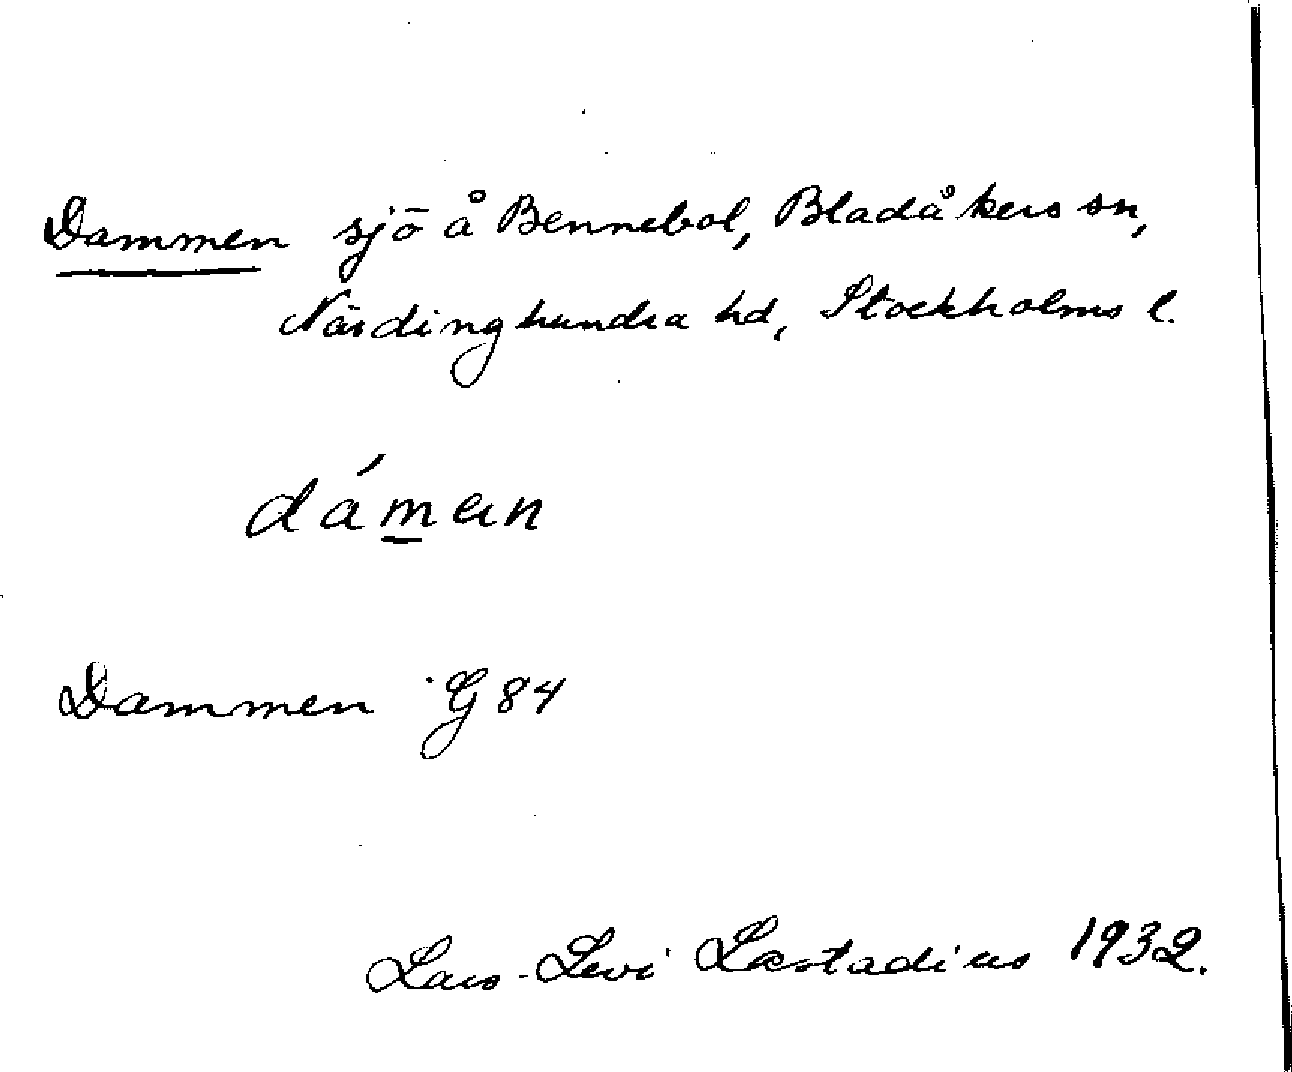 Dammen sjö å Bennebol, Bladåkers sn,
Närdinghundra hd, Stockholms l.
dáman
Dammen G 84
Lars-Levi Læstadius 1932.